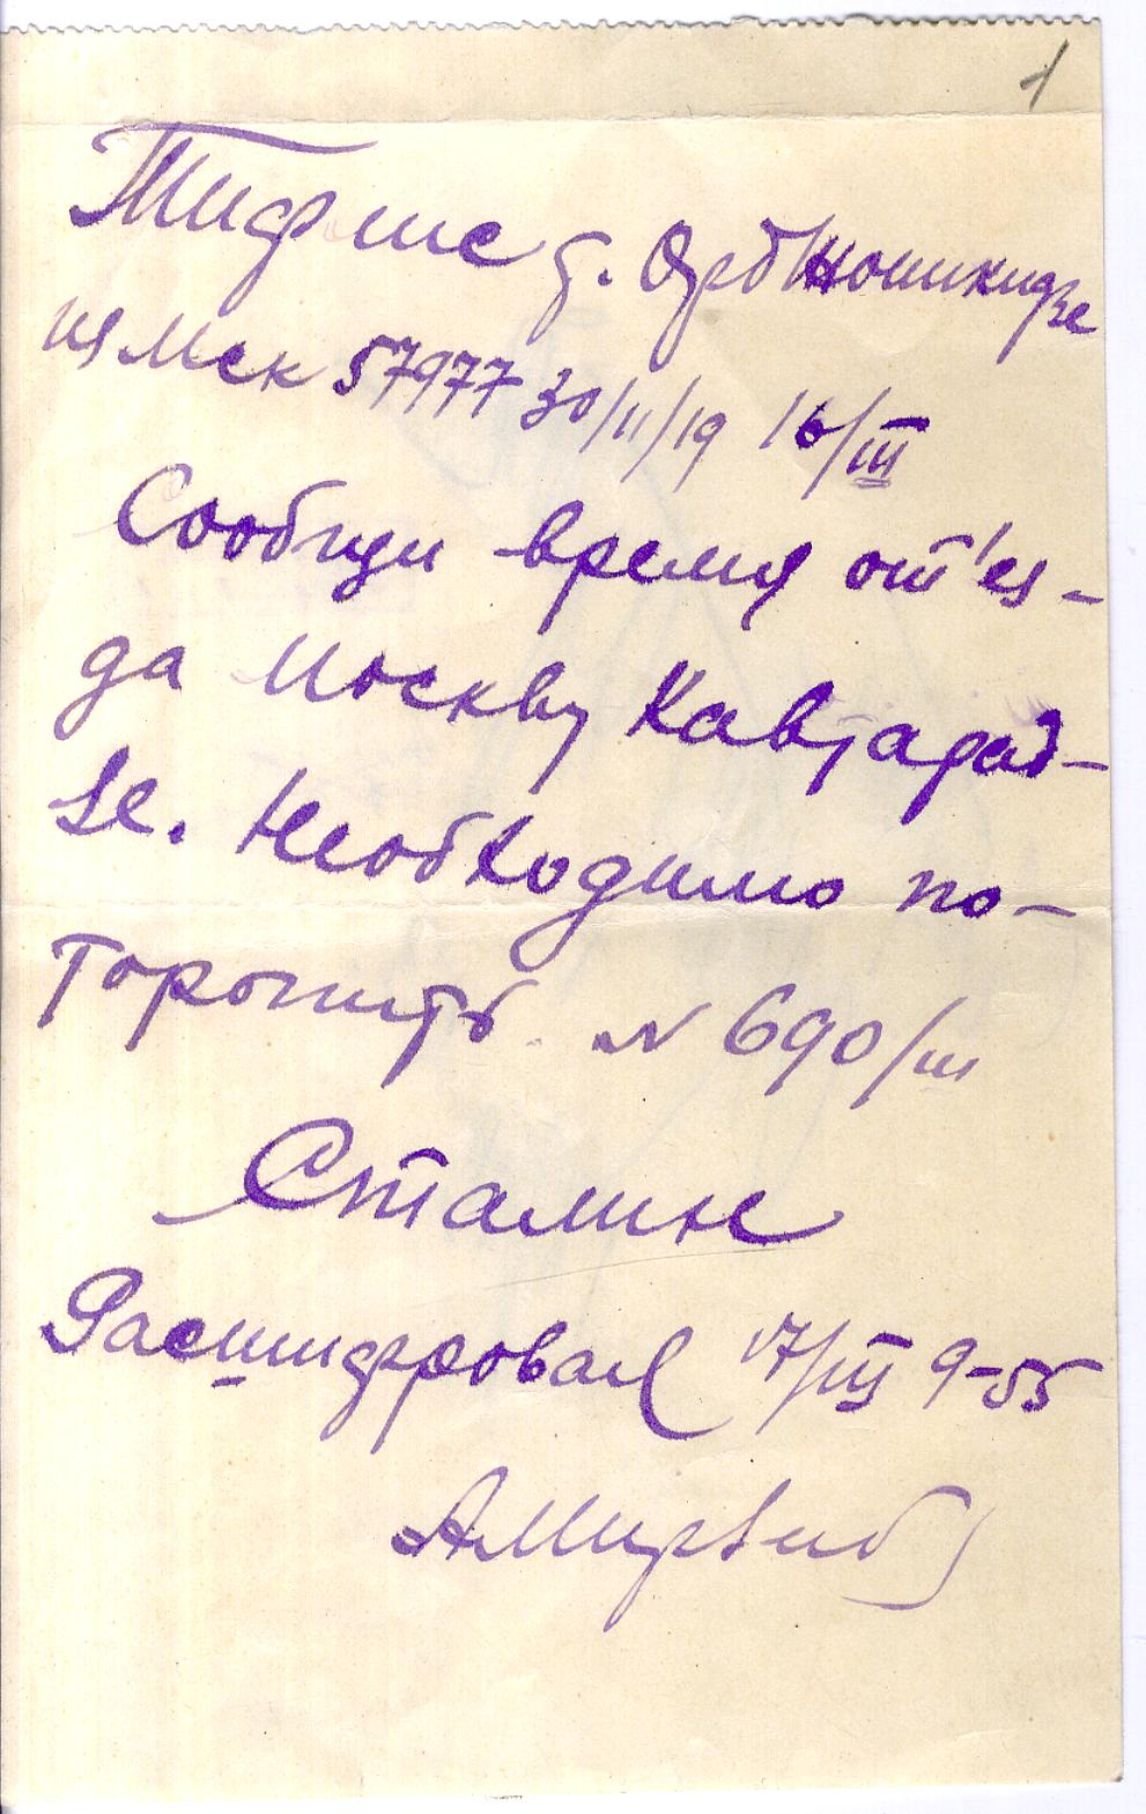 1
Тифлис т. Орджоникидзе
из Мск 57977 30/11/19 16/III
Сообщи время от'ез-
да Москву Кавтарад-
зе. Необходимо по-
торопить N 690/ш
Сталин
Расшифровал 17/III 9-55